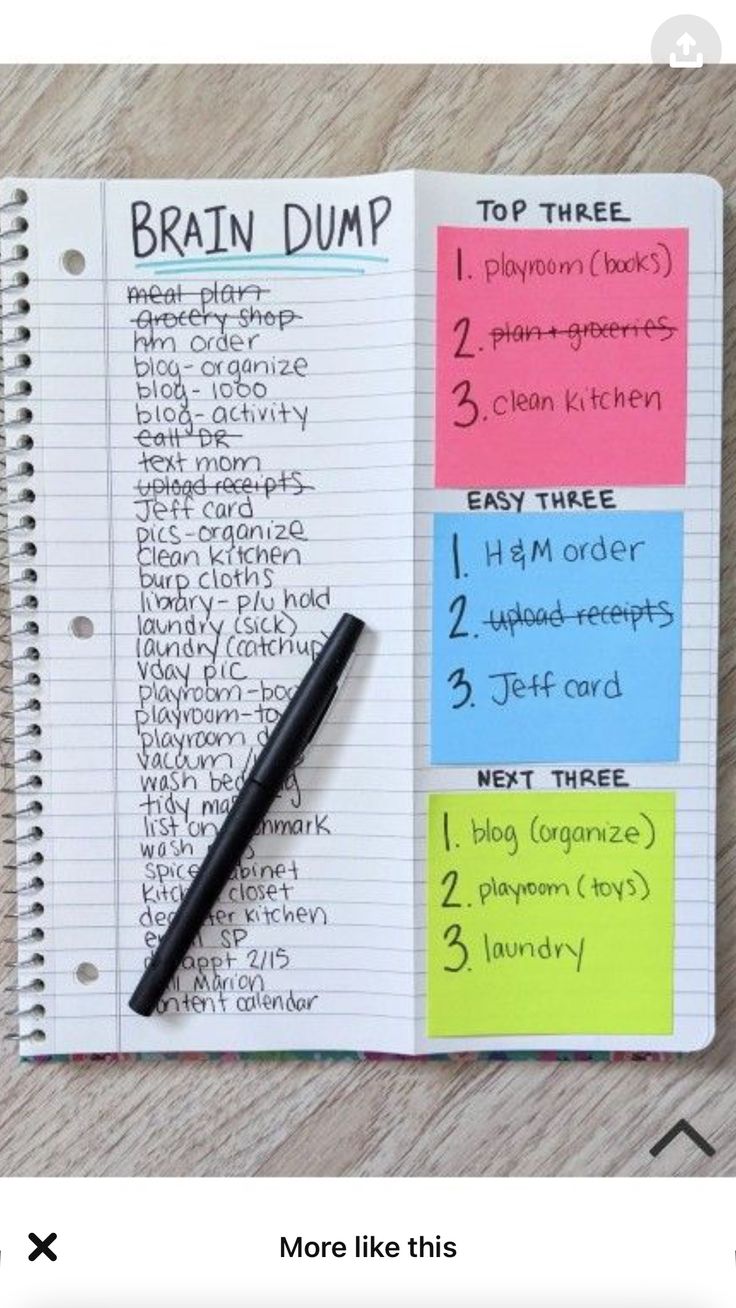 BRAIN DUMP
meal plan
grocery shop
hm order
blog-organize
blog-1000
blog-activity
call DR
text mom
upload receipts
Jeff card
pics-organize
clean kitchen
burp cloths
library-p/u hold
laundry (sick)
laundry (catchup)
vday pic
playroom-
playroom-
playroom
vacuum
wash
tidy
list on
wash
spice
closet
kitchen
SP
appt 2/15
Marion
content calendar
TOP THREE
1. playroom (books)
2. plan + groceries
3. clean kitchen
EASY THREE
1. H&M order
2. upload receipts
3. Jeff card
NEXT THREE
1. blog (organize)
2. playroom (toys)
3. laundry
More like this